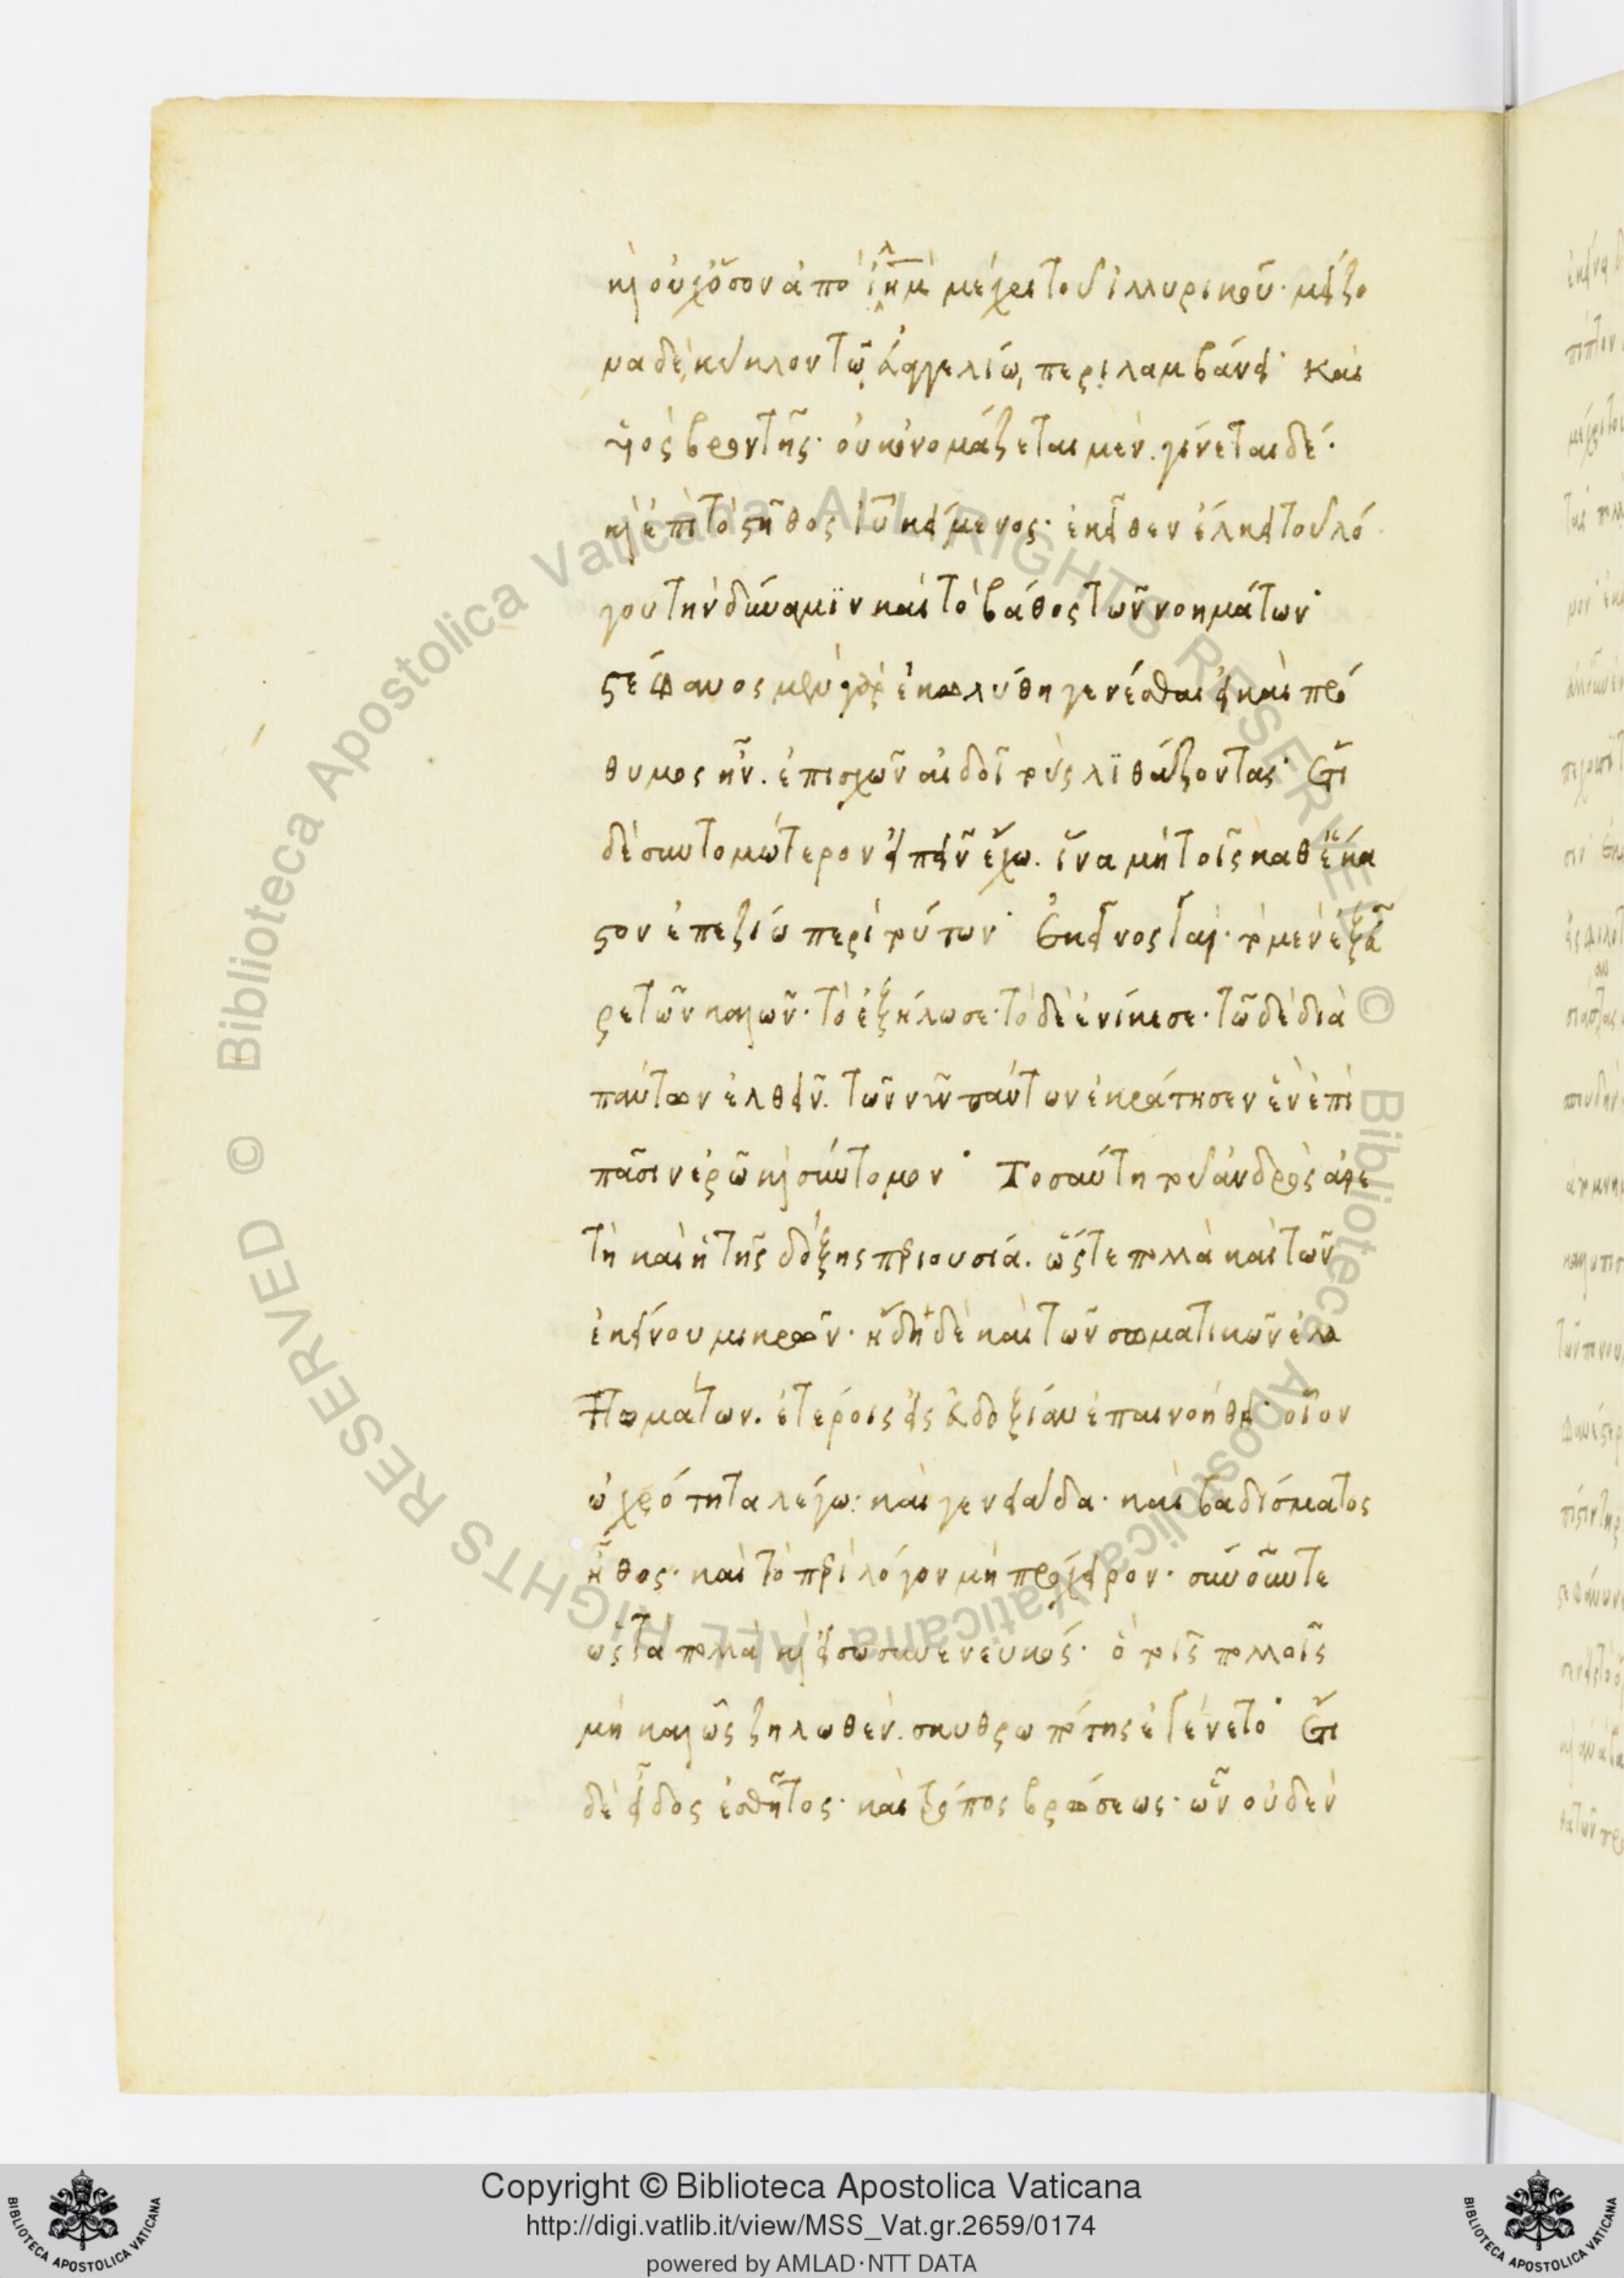 κ(αὶ) οὐχ ὅσον ἀπὸ ἱλημ μέχρι τοῦ ἰλλυρικοῦ· μείζο
να δὲ κύκλον τῷ εὐαγγελίῳ περιλαμβάνει· καὶ
υἱὸς βροντῆς· οὐκ ὀνομάζεται μὲν. γίνεται δέ·
κ(αὶ) ἐπὶ τὸ στῆθος ἰῦ κείμενος· ἐκεῖθεν ἕλκει τοῦ λό
γου τὴν δύναμϊν καὶ τὸ βάθος τῶν νοημάτων·
στέφανος μὲν γὰρ ἐκωλύθη γενέσθαι εἰ καὶ πρό
θυμος ἦν. ἐπισχὼν αἰδοῖ τοὺς λϊθάζοντας· Ετι
δὲ συντομώτερον εἰπεῖν ἔχω. ἵνα μὴ τοῖς καθ ἕκα
στον ἐπεξίω περὶ τούτων· Εκεῖνος γὰρ. τὸ μὲν ἐξεῦ
ρε τῶν καλῶν· τὸ ἐζήλωσε· τὸ δὲ ἐνίκησε· τῷ δὲ διὰ
πάντων ἐλθεῖν. τῶν νῦν πάντων ἐκράτησεν ἓν ἐπὶ
πᾶσιν ἐρῶ κ(αὶ) σύντομον· Τοσαύτη τοῦ ἀνδρὸς ἀρε
τὴ καὶ ἡ τῆς δόξης περιουσία. ὥστε πολλὰ καὶ τῶν
ἐκείνου μικρῶν· ἤδη δὲ καὶ τῶν σωματικῶν ἐλα
ττωμάτων. ἑτέροις εἰς εὐδοξίαν ἐπινοήθη· οἷον
ὠχρότητα λέγω· καὶ γενειάδα· καὶ βαδίσματος
ἦθος· καὶ τὸ περὶ λόγον μὴ πρόχειρον· σύννουν τε
ὡς τὰ πολλὰ κ(αὶ) εἴσω συννενευκός· ὃ τοῖς πολλοῖς
μὴ καλῶς ζηλωθὲν. σκυθρωπότης ἐγένετο· Ετι
δὲ εἶδος ἐσθῆτος· καὶ τρόπος βρώσεως· ὧν οὐδὲν
Copyright © Biblioteca Apostolica Vaticana
http://digi.vatlib.it/view/MSS_Vat.gr.2659/0174
powered by AMLAD·NTT DATA
BIBLIOTECA APOSTOLICA VATICANA
BIBLIOTECA APOSTOLICA VATICANA
© Biblioteca Apostolica Vaticana ALL RIGHTS RESERVED © Biblioteca Apostolica Vaticana ALL RIGHTS RESERVED